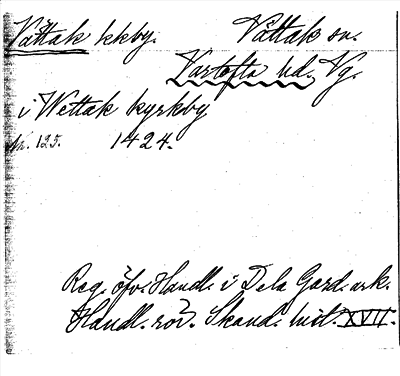 Vättak kkby. Vättaks sn.
Vartofta hd. Vg.
i Wettak kyrkby
Nr. 125. 1424.
Reg. öfv. Handl. i Dela Gard. ark.
Handl. rör. Skand. hist. XVII.